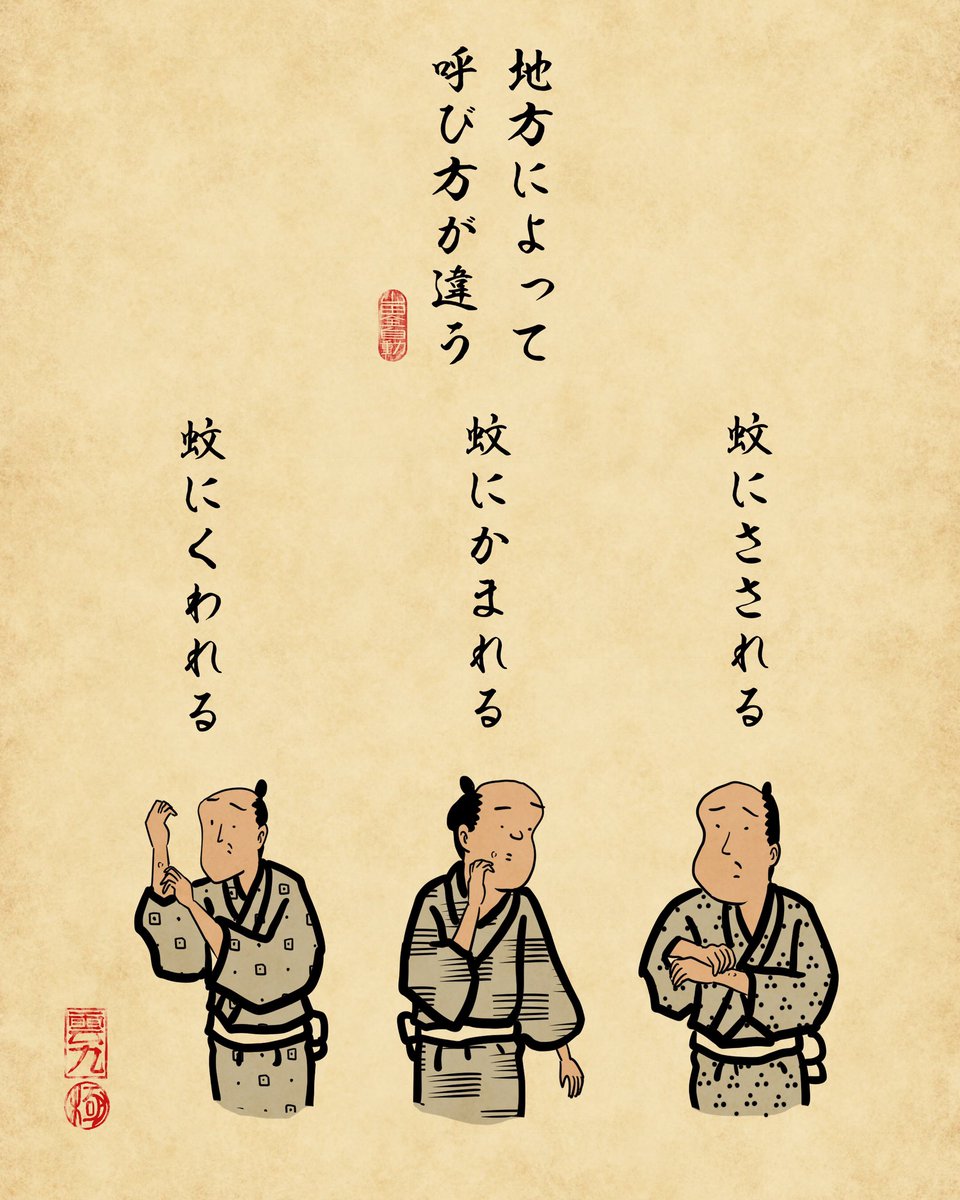 地方によって
呼び方が違う
蚊にさされる
蚊にかまれる
蚊にくわれる